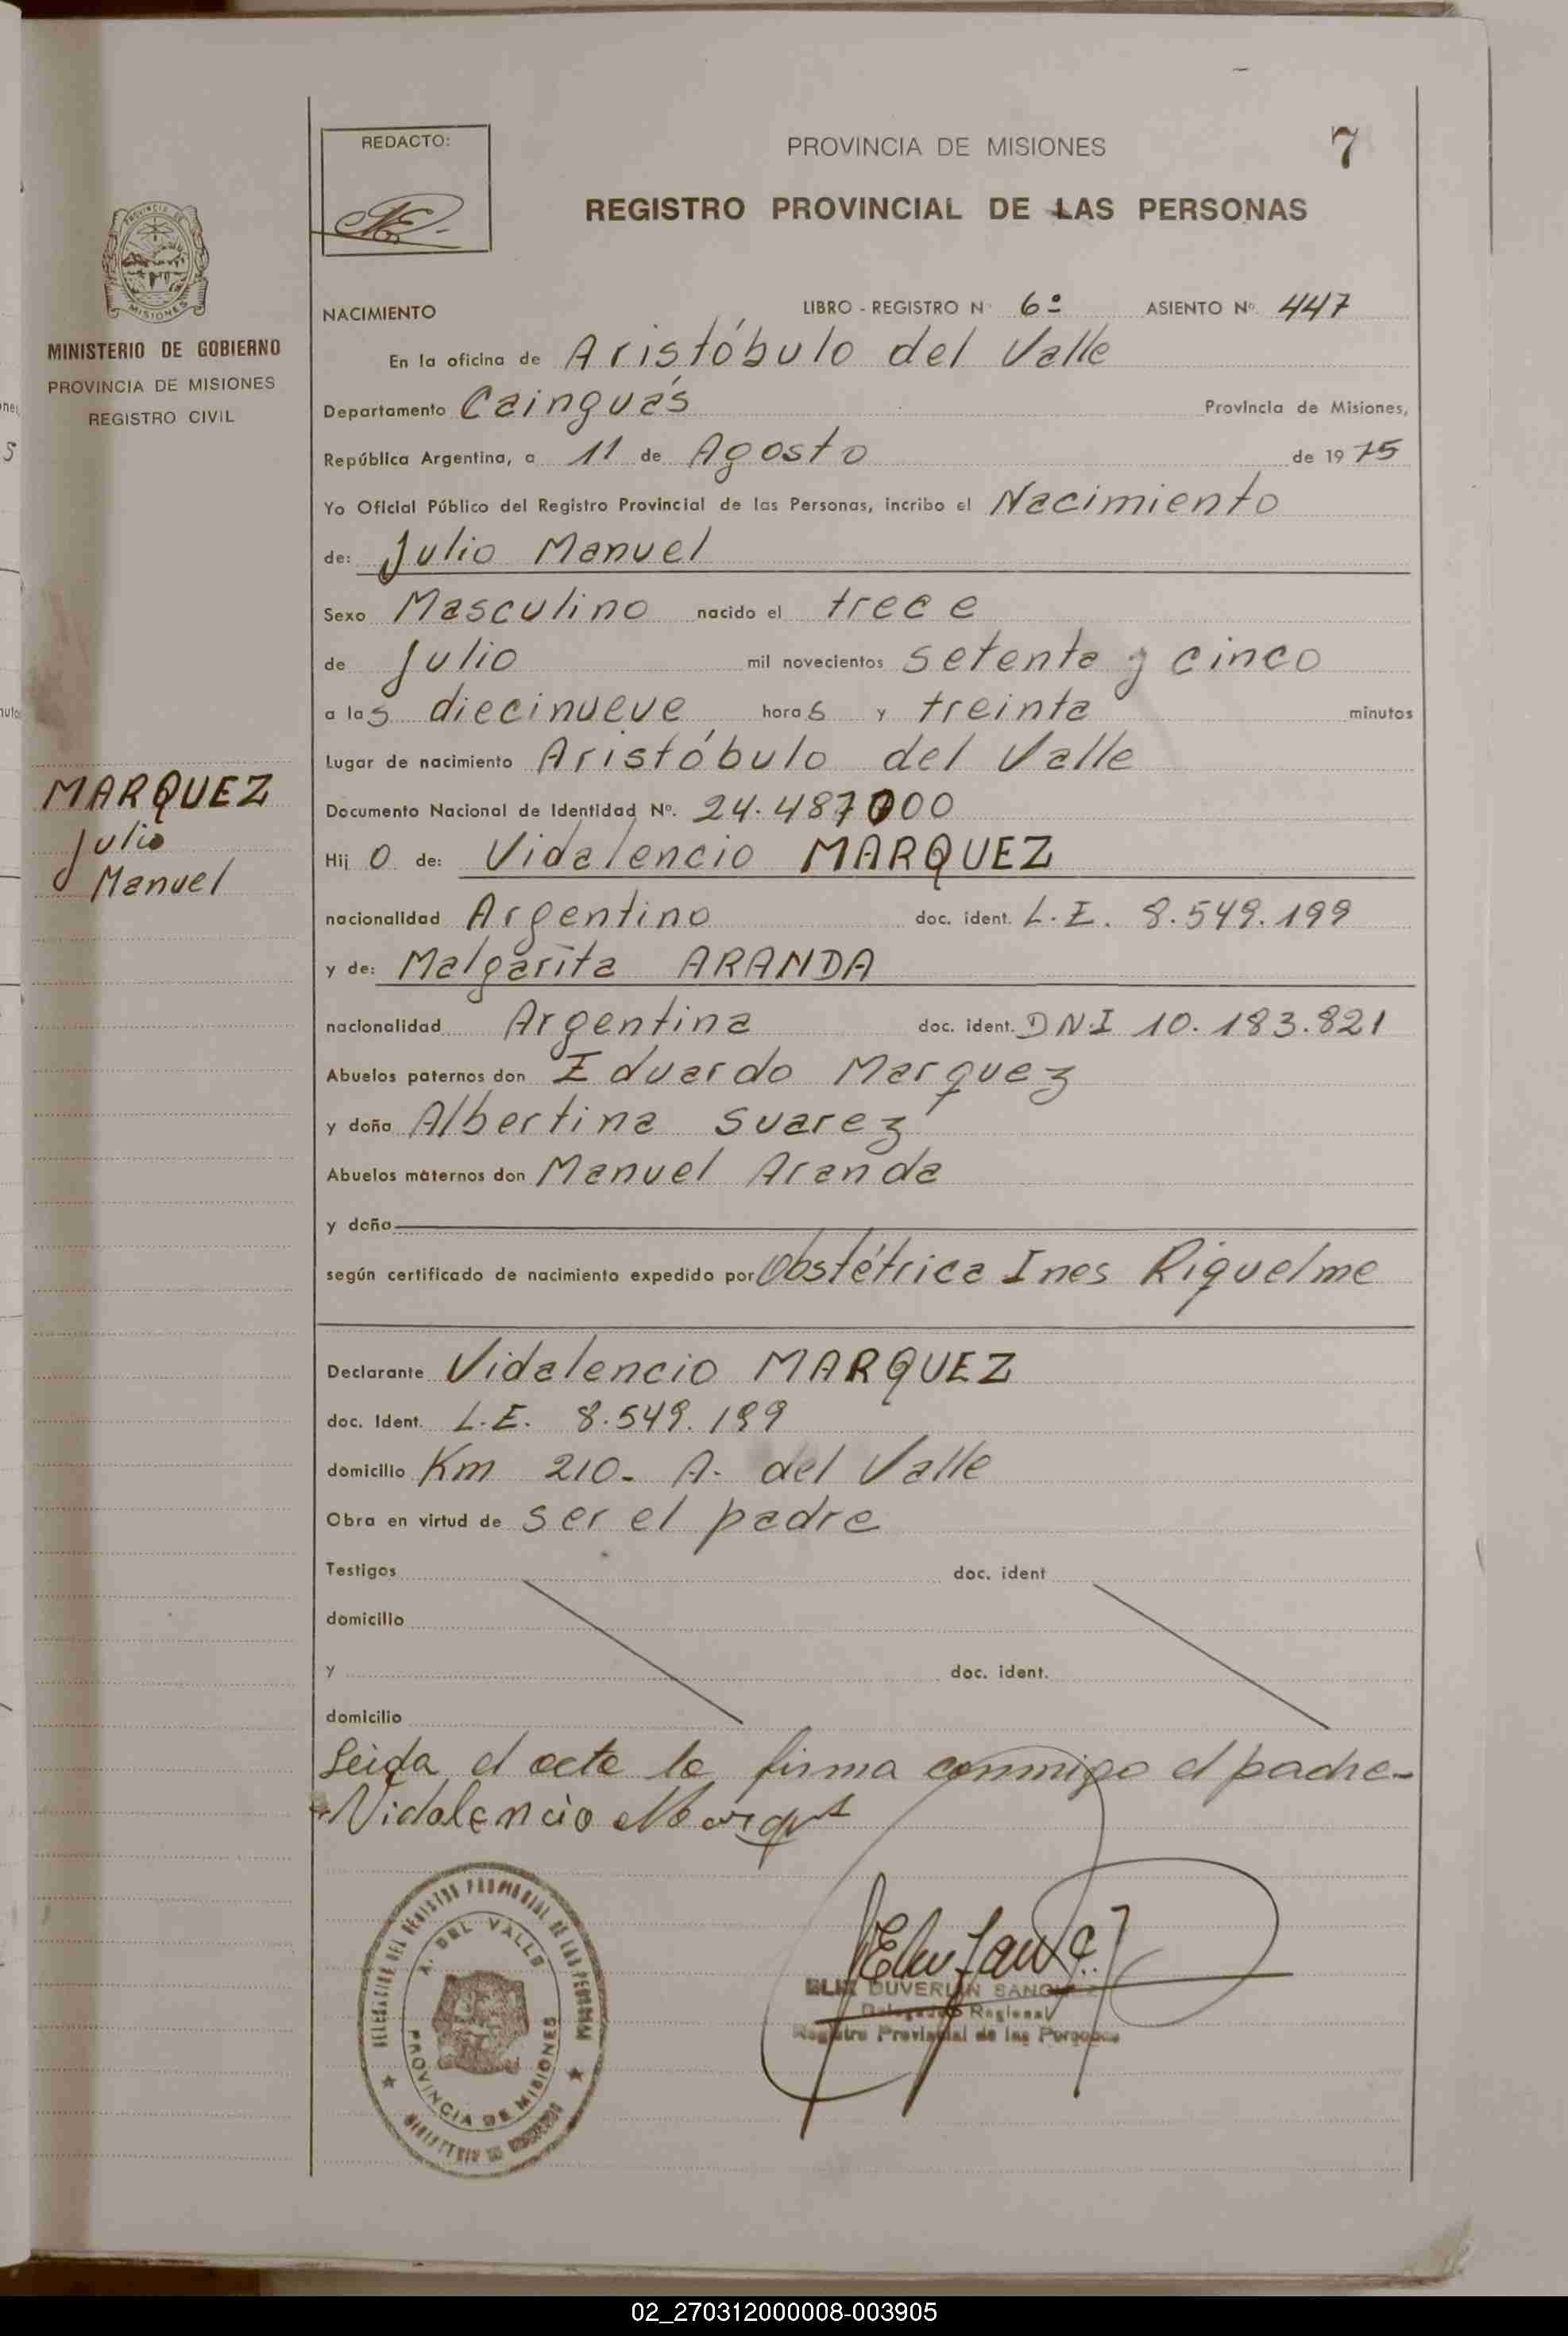 REDACTO:
PROVINCIA DE MISIONES
7
REGISTRO PROVINCIAL DE LAS PERSONAS
PROVINCIA DE
MISIONES
MINISTERIO DE GOBIERNO
PROVINCIA DE MISIONES
REGISTRO CIVIL
MARQUEZ
Julio
Manuel
NACIMIENTO LIBRO - REGISTRO N° 6º ASIENTO Nº 447
En la oficina de Aristóbulo del Valle
Departamento Cainguás Provincia de Misiones,
República Argentina, a 11 de Agosto de 1975
Yo Oficial Público del Registro Provincial de las Personas, incribo el Nacimiento
de: Julio Manuel
Sexo Masculino nacido el trece
de Julio mil novecientos setenta y cinco
a las diecinueve horas y treinta minutos
Lugar de nacimiento Aristóbulo del Valle
Documento Nacional de Identidad Nº. 24.487000
Hij o de: Vidalencio MARQUEZ
nacionalidad Argentino doc. ident. L.E. 8.549.199
y de: Malgarita ARANDA
nacionalidad Argentina doc. ident. DN.I 10.183.821
Abuelos paternos don Eduardo Marquez
y doña Albertina Suarez
Abuelos maternos don Manuel Aranda
y doña
según certificado de nacimiento expedido por Obstétrica Ines Riquelme
Declarante Vidalencio MARQUEZ
doc. Ident. L.E. 8.549.199
domicilio Km 210- A. del Valle
Obra en virtud de ser el padre
Testigos doc. ident
domicilio
y doc. ident.
domicilio
Leida el acta la firma conmigo el padre-
Vidalencio
DELEGACION DEL REGISTRO PROVINCIAL DE LAS PERSONAS
A. DEL VALLE
PROVINCIA DE MISIONES
MINISTERIO DE GOBIERNO
DUVERLIN
Delegado Regional
Registro Provincial de las Personas
02_270312000008-003905